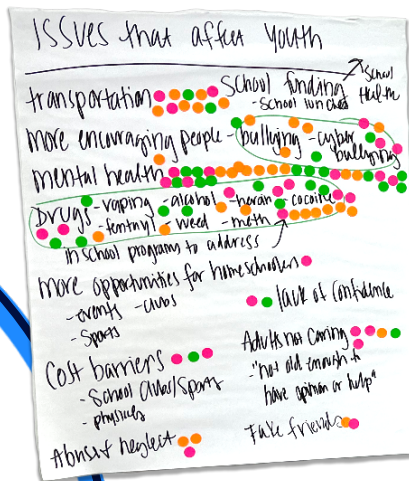 ISSUES that affect YOUTH
transportation
School funding
- School lunches
School
Health
more encouraging people
- bullying - cyber
bullying
mental health
Drugs - vaping - alcohol - heroin - cocaine
- fentanyl - weed - meth
in school programs to address
more opportunities for homeschoolers
- events - clubs
- sports
lack of confidence
Cost barriers
- School clubs/sports
- physicals
Adults not caring
- "not old enough to
have opinion or help"
Abuse & neglect
Fake friends